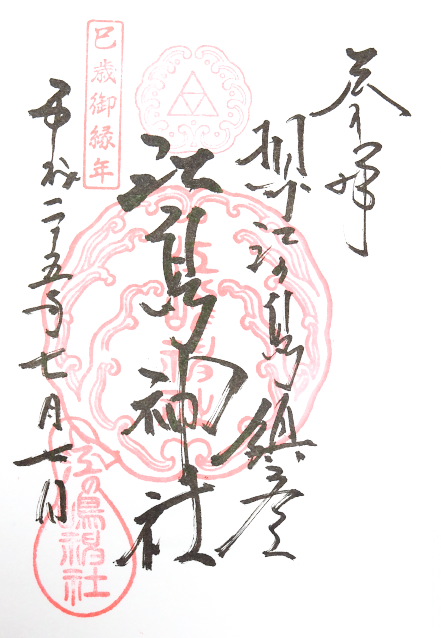 奉拝
相州江の島鎮座
江島神社
巳歳御縁年
平成二十五年七月七日
江の嶋神社